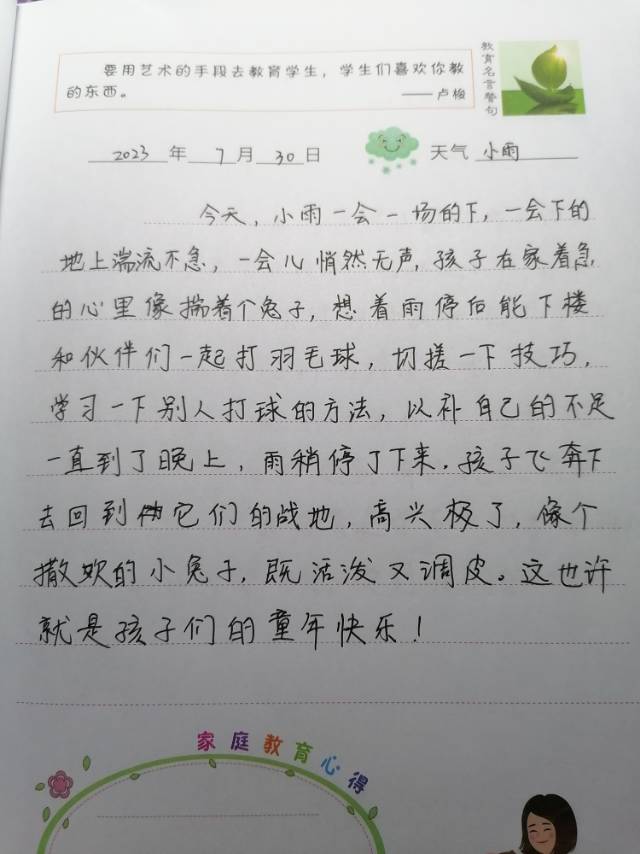 要用艺术的手段去教育学生，学生们喜欢你教
的东西。 ——卢梭
教育名言警句
2023 年 7 月 30 日 天气 小雨
今天，小雨一会一场的下，一会下的
地上湍流不急，一会儿悄然无声，孩子在家着急
的心里像揣着个兔子，想着雨停后能下楼
和伙伴们一起打羽毛球，切搓一下技巧，
学习一下别人打球的方法，以补自己的不足
一直到了晚上，雨稍停了下来，孩子飞奔下
去回到它们的战地，高兴极了，像个
撒欢的小兔子，既活泼又调皮。这也许
就是孩子们的童年快乐！
家庭教育心得